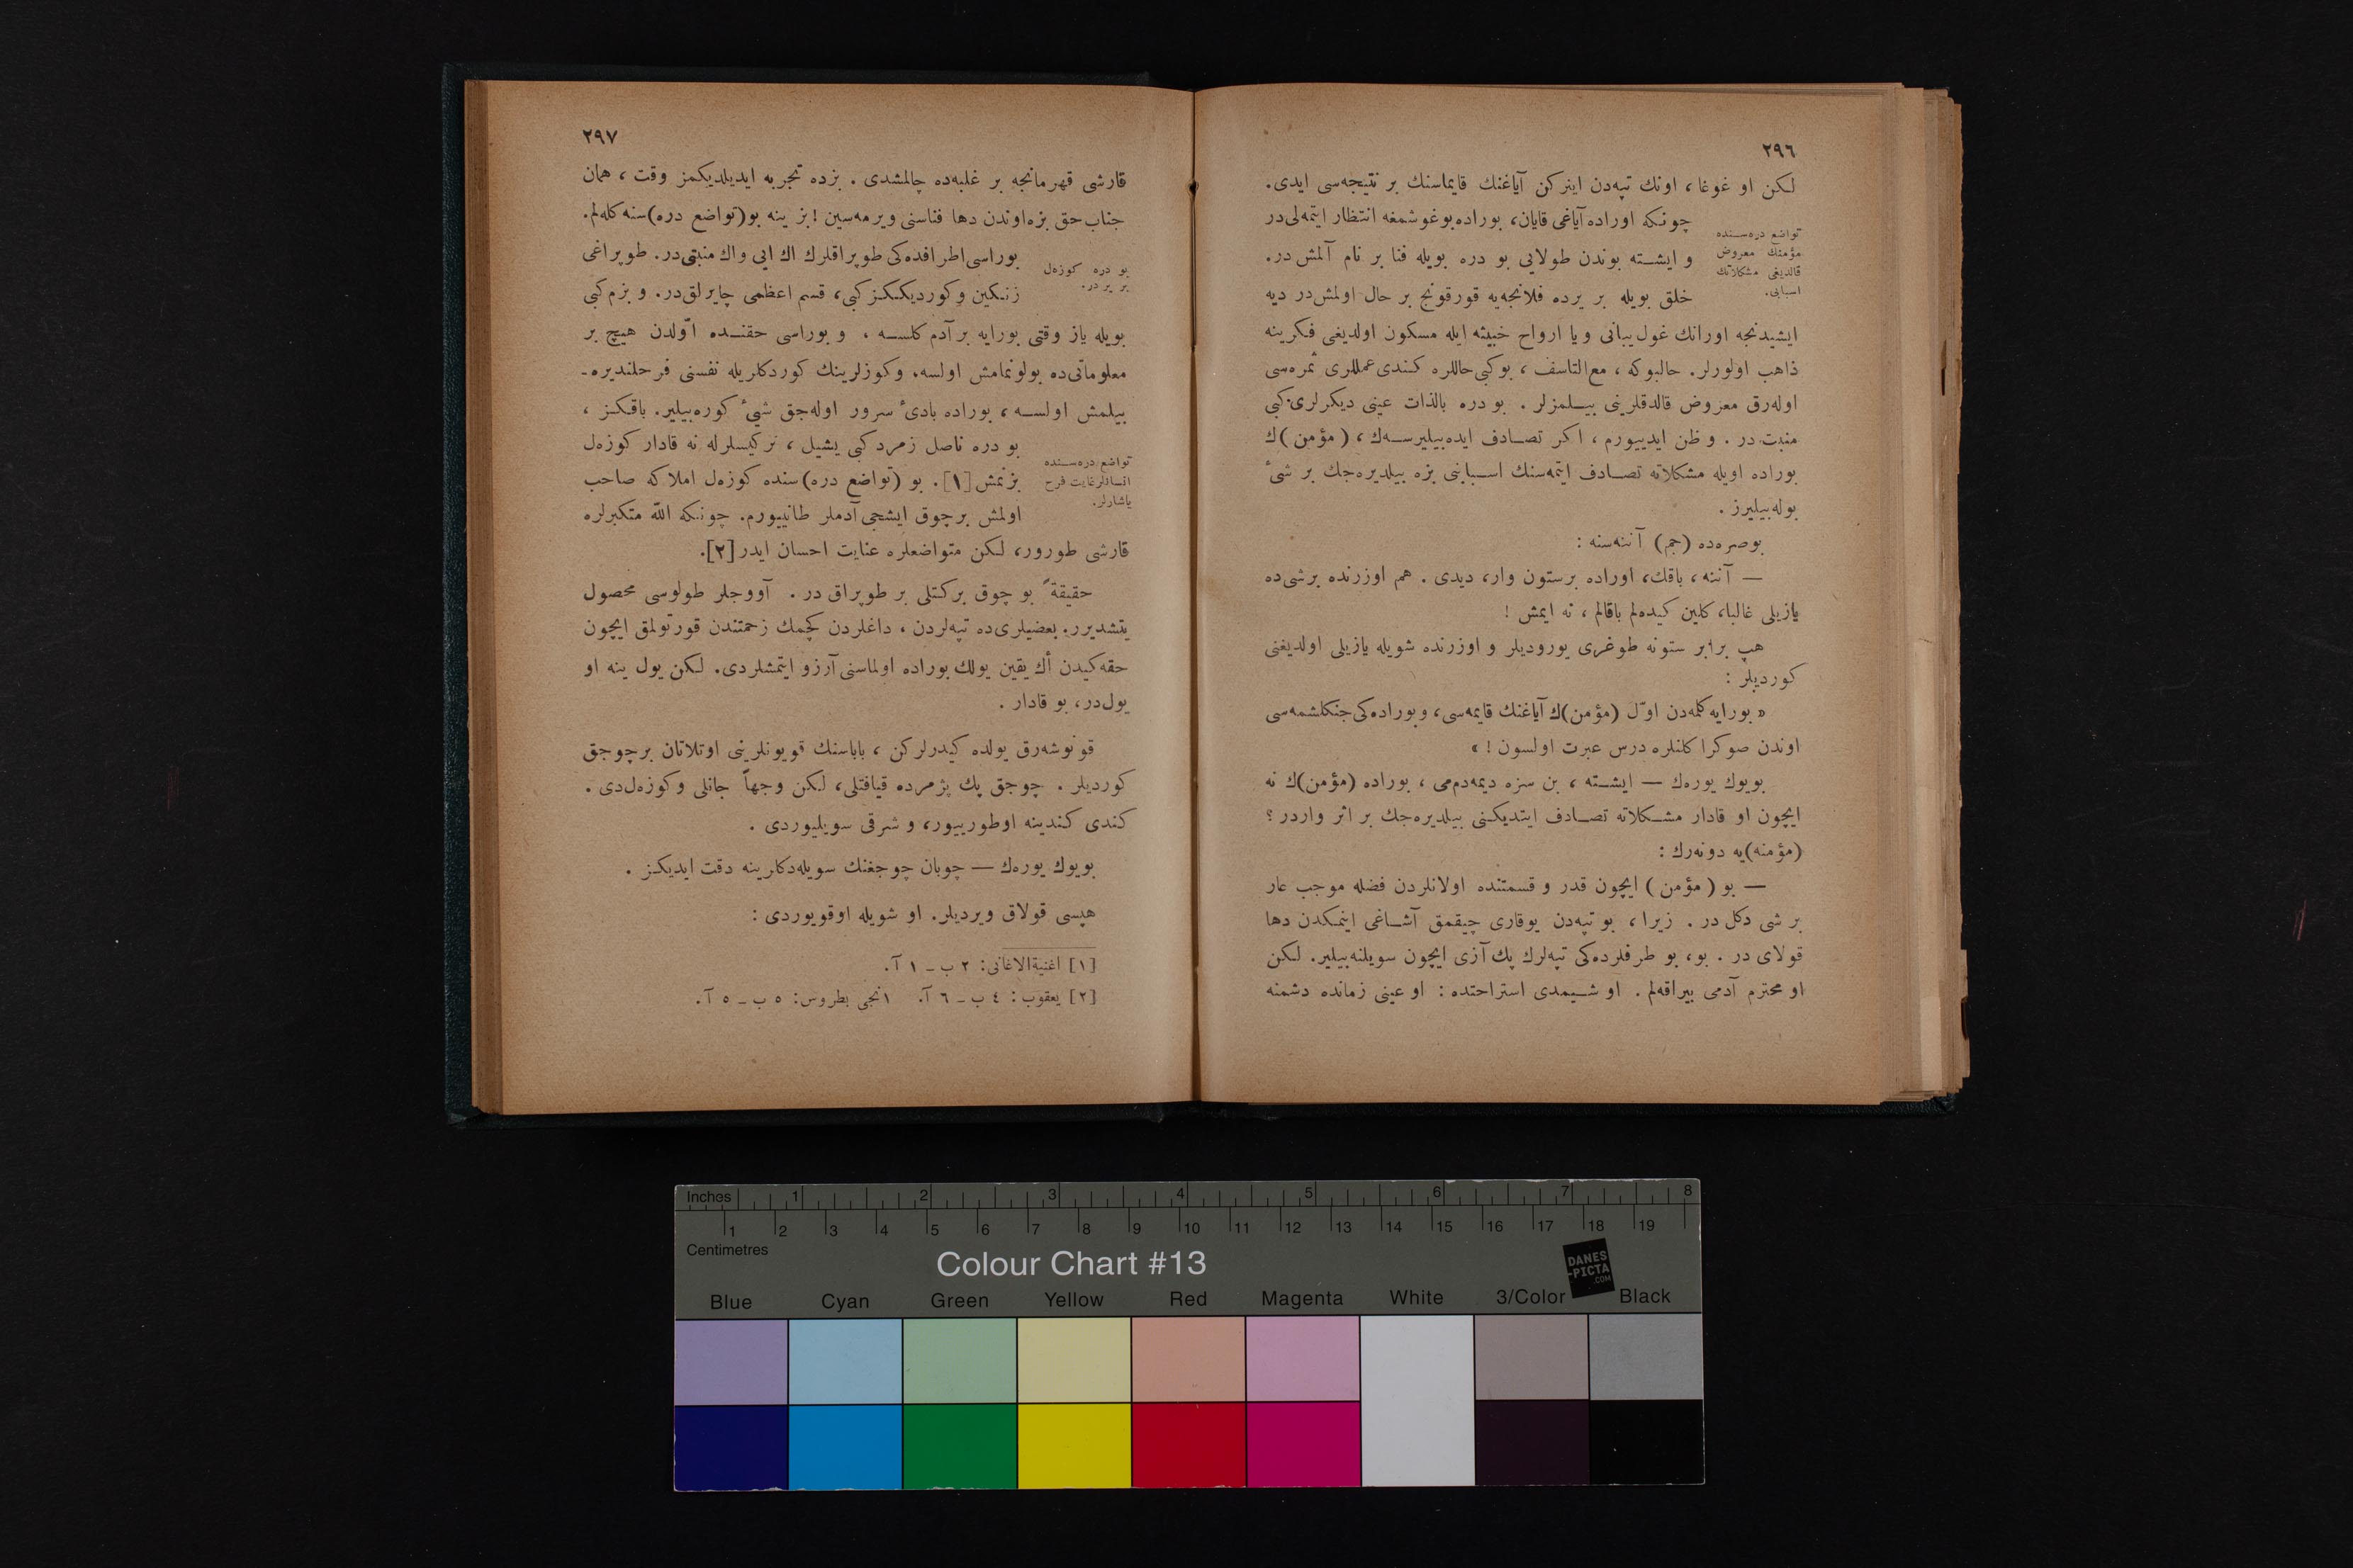 ٢٩٦
لكن او غوغا، اونك تپه‌دن اينركن آياغنك قايماسنك بر نتيجه‌سى ايدى.
چونكه اوراده آياغى قايان، بوراده بوغوشمغه انتظار ايتمه‌لى‌در
تواضع دره‌سنده
مؤمنك معروض
قالديغى مشكلاتك
اسبابى.
و ايشته بوندن طولايى بو دره بويله فنا بر نام آلمش‌در.
خلق بويله بر يرده فلانجه‌يه قورقونج بر حال اولمش‌در ديه
ايشيدنجه اورانك غول يبانى ويا ارواح خبيثه ايله مسكون اولديغى فكرينه
ذاهب اولورلر. حالبوكه، مع‌التاسف، بوكبى حاللره كندى عمللرى ثمره‌سى
اوله‌رق معروض قالدقلرينى بيلمزلر. بو دره بالذات عينى ديكرلرى كبى
منبت در. و ظن ايدييورم، اكر تصادف ايده‌بيليرسه‌ك، (مؤمن)ك
بوراده اويله مشكلاته تصادف ايتمه‌سنك اسبابنى بزه بيلديره‌جك بر شىٔ
بوله‌بيليرز.
بوصره‌ده (جم) آننه‌سنه:
— آننه، باقك، اوراده برستون وار، ديدى. هم اوزرنده برشى‌ده
يازيلى غالبا، كلين كيده‌لم باقالم، نه ايمش!
هپ برابر ستونه طوغرى يوروديلر و اوزرنده شويله يازيلى اولديغنى
كورديلر:
« بورايه كلمه‌دن اوّل (مؤمن)ك آياغنك قايمه‌سى، وبوراده‌كى جنكلشمه‌سى
اوندن صوكرا كلنلره درس عبرت اولسون! »
بويوك يوره‌ك — ايشته، بن سزه ديمه‌دم‌مى، بوراده (مؤمن)ك نه
ايچون او قادار مشكلاته تصادف ايتديكنى بيلديره‌جك بر اثر واردر؟
(مؤمنه)يه دونه‌رك:
— بو (مؤمن) ايچون قدر و قسمتنده اولانلردن فضله موجب عار
بر شى دكل در. زيرا، بو تپه‌دن يوقارى چيقمق آشاغى اينمكدن دها
قولاى در. بو، بو طرفلرده‌كى تپه‌لرك پك آزى ايچون سويلنه‌بيلير. لكن
او محترم آدمى بيراقه‌لم. او شيمدى استراحتده: او عينى زمانده دشمنه
٢٩٧
قارشى قهرمانجه بر غلبه‌ده چالمشدى. بزده تجربه ايديلديكمز وقت، همان
جناب حق بزه اوندن دها فناسنى ويرمه‌سين! بز ينه بو (تواضع دره)سنه كله‌لم.
بو دره كوزه‌ل
بر ير در.
بوراسى اطرافده‌كى طوپراقلرك اك ايى واك منبتى‌در. طوپراغى
زنكين و كورديككز كبى، قسم اعظمى چايرلق‌در. و بزم كبى
بويله ياز وقتى بورايه بر آدم كلسه، و بوراسى حقنده اوّلدن هيچ بر
معلوماتى‌ده بولونمامش اولسه، وكوزلرينك كوردكلريله نفسنى فرحلنديره-
بيلمش اولسه، بوراده بادئ سرور اوله‌جق شئ كوره‌بيلير. باقكز،
بو دره ناصل زمرد كبى يشيل، نركيسلرله نه قادار كوزه‌ل
تواضع دره‌سنده
انسانلر غايت فرح
ياشارلر.
بزنمش [١]. بو (تواضع دره)سنده كوزه‌ل املاكه صاحب
اولمش برچوق ايشجى آدملر طانييورم. چونكه اللّٰه متكبرلره
قارشى طورور، لكن متواضعلره عنايت احسان ايدر [٢].
حقيقةً بو چوق بركتلى بر طوپراق در. آووجلر طولوسى محصول
يتشديرر. بعضيلرى‌ده تپه‌لردن، داغلردن كچمك زحمتندن قورتولمق ايچون
حقه كيدن أك يقين يولك بوراده اولماسنى آرزو ايتمشلردى. لكن يول ينه او
يول‌در، بو قادار.
قونوشه‌رق يولده كيدرلركن، باباسنك قويونلرينى اوتلاتان برچوجق
كورديلر. چوجق پك پژمرده قيافتلى، لكن وجهاً جانلى وكوزه‌ل‌دى.
كندى كندينه اوطورييور، و شرقى سويليوردى.
بويوك يوره‌ك — چوبان چوجغنك سويله‌دكلرينه دقت ايديكز.
هپسى قولاق ويرديلر. او شويله اوقويوردى:
[١] اغنية‌الاغانى: ٢ ب ـ ١ آ.
[٢] يعقوب: ٤ ب ـ ٦ آ. ١نجى بطروس: ٥ ب ـ ٥ آ.
Inches 1 2 3 4 5 6 7 8
1 2 3 4 5 6 7 8 9 10 11 12 13 14 15 16 17 18 19
Centimetres
Colour Chart #13
DANES
-PICTA
.COM
Blue Cyan Green Yellow Red Magenta White 3/Color Black